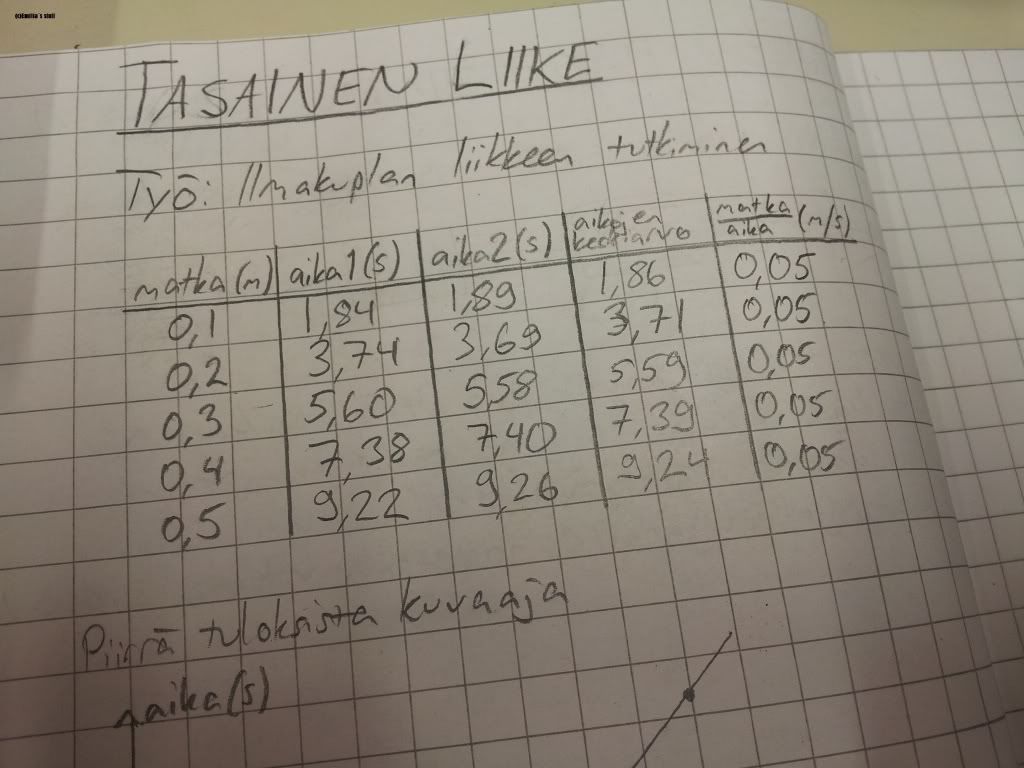 (c)Emilia's stuff
TASAINEN LIIKE
Työ: Ilmakuplan liikkeen tutkiminen
matka (m) aika1(s) aika2(s) aikojen keskiarvo matka/aika (m/s)
0,1 1,84 1,89 1,86 0,05
0,2 3,74 3,69 3,71 0,05
0,3 5,60 5,58 5,59 0,05
0,4 7,38 7,40 7,39 0,05
0,5 9,22 9,26 9,24 0,05
Piirrä tuloksista kuvaaja
aika(s)